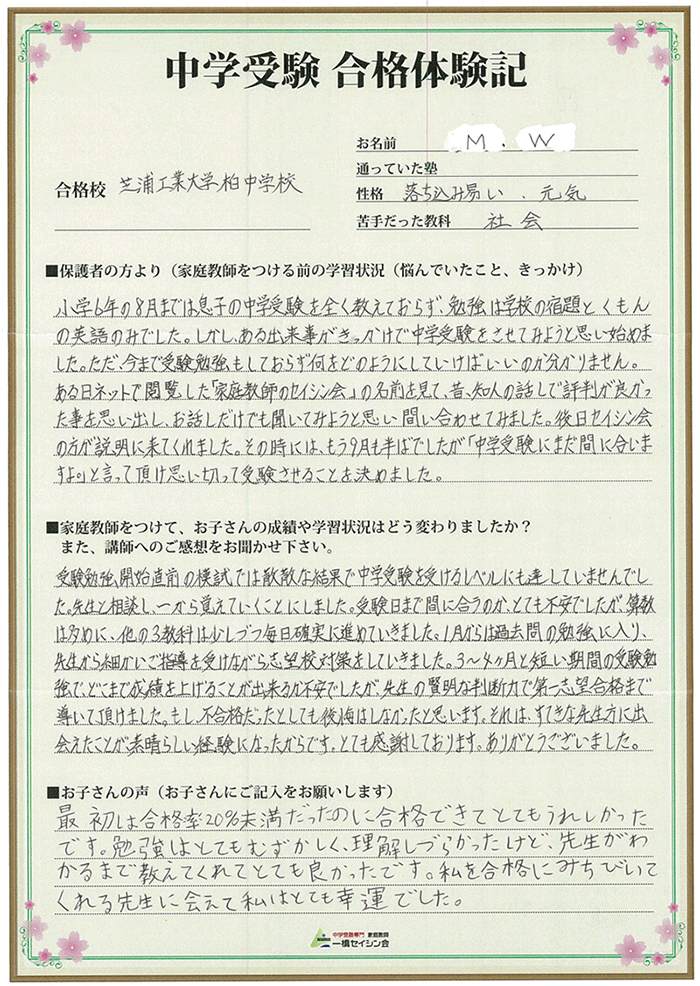 中学受験 合格体験記
お名前 M . W
通っていた塾
合格校 芝浦工業大学柏中学校
性格 落ち込み易い 、元気
苦手だった教科 社会
■保護者の方より（家庭教師をつける前の学習状況（悩んでいたこと、きっかけ）
小学6年の8月までは息子の中学受験を全く教えておらず、勉強は学校の宿題とくもん
の英語のみでした。しかし、ある出来事がきっかけで中学受験をさせてみようと思い始めま
した。ただ、今まで受験勉強もしておらず何をどのようにしていけばいいのか分かりません。
ある日ネットで閲覧した「家庭教師のセイシン会」の名前を見て、昔、知人の話しで評判が良かっ
た事を思い出し、お話しだけでも聞いてみようと思い問い合わせてみました。後日セイシン会
の方が説明に来てくれました。その時には、もう9月も半ばでしたが「中学受験にまだ間に合いま
すよ。」と言って頂け思い切って受験させることを決めました。
■家庭教師をつけて、お子さんの成績や学習状況はどう変わりましたか？
また、講師へのご感想をお聞かせ下さい。
受験勉強開始直前の模試では散散な結果で中学受験を受けるレベルにも達していませんでし
た。先生と相談し、一から覚えていくことにしました。受験日まで間に合うのか、とても不安でしたが、算数
は多めに、他の3教科は少しづつ毎日確実に進めていきました。1月からは過去問の勉強に入り、
先生から細かいご指導を受けながら志望校対策をしていきました。3〜4ヶ月と短い期間の受験勉
強で、どこまで成績を上げることが出来るか不安でしたが、先生の賢明な判断力で第一志望合格まで
導いて頂けました。もし、不合格だったとしても後悔はしなかったと思います。それは、すてきな先生方に出
会えたことが素晴らしい経験になったからです。とても感謝しております。ありがとうございました。
■お子さんの声（お子さんにご記入をお願いします）
最初は合格率20%未満だったのに合格できてとてもうれしかった
です。勉強はとてもむずかしく、理解しづらかったけど、先生がわ
かるまで教えてくれてとても良かったです。私を合格にみちびいて
くれる先生に会えて私はとても幸運でした。
中学受験専門 家庭教師
一橋セイシン会